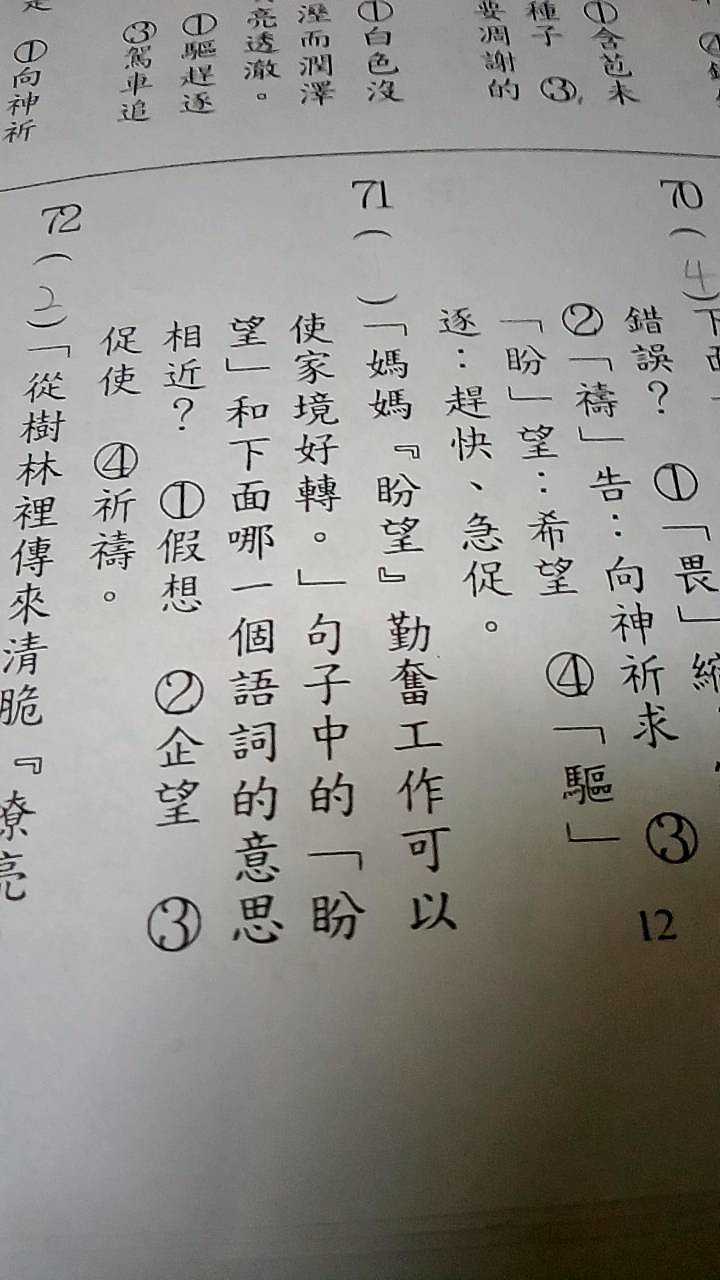 ①含苞未
種子 ③
要凋謝的
①白色沒
溼而潤澤
亮透澈。
①驅趕逐
③駕車追
①向神祈
70(4)下面
錯誤? ①「畏」縮
②「禱」告:向神祈求 ③
「盼」望:希望 ④「驅」
逐:趕快、急促。
71( )「媽媽『盼望』勤奮工作可以
使家境好轉。」句子中的「盼
望」和下面哪一個語詞的意思
相近? ①假想 ②企望 ③
促使 ④祈禱。
72(2)「從樹林裡傳來清脆『嘹亮
12